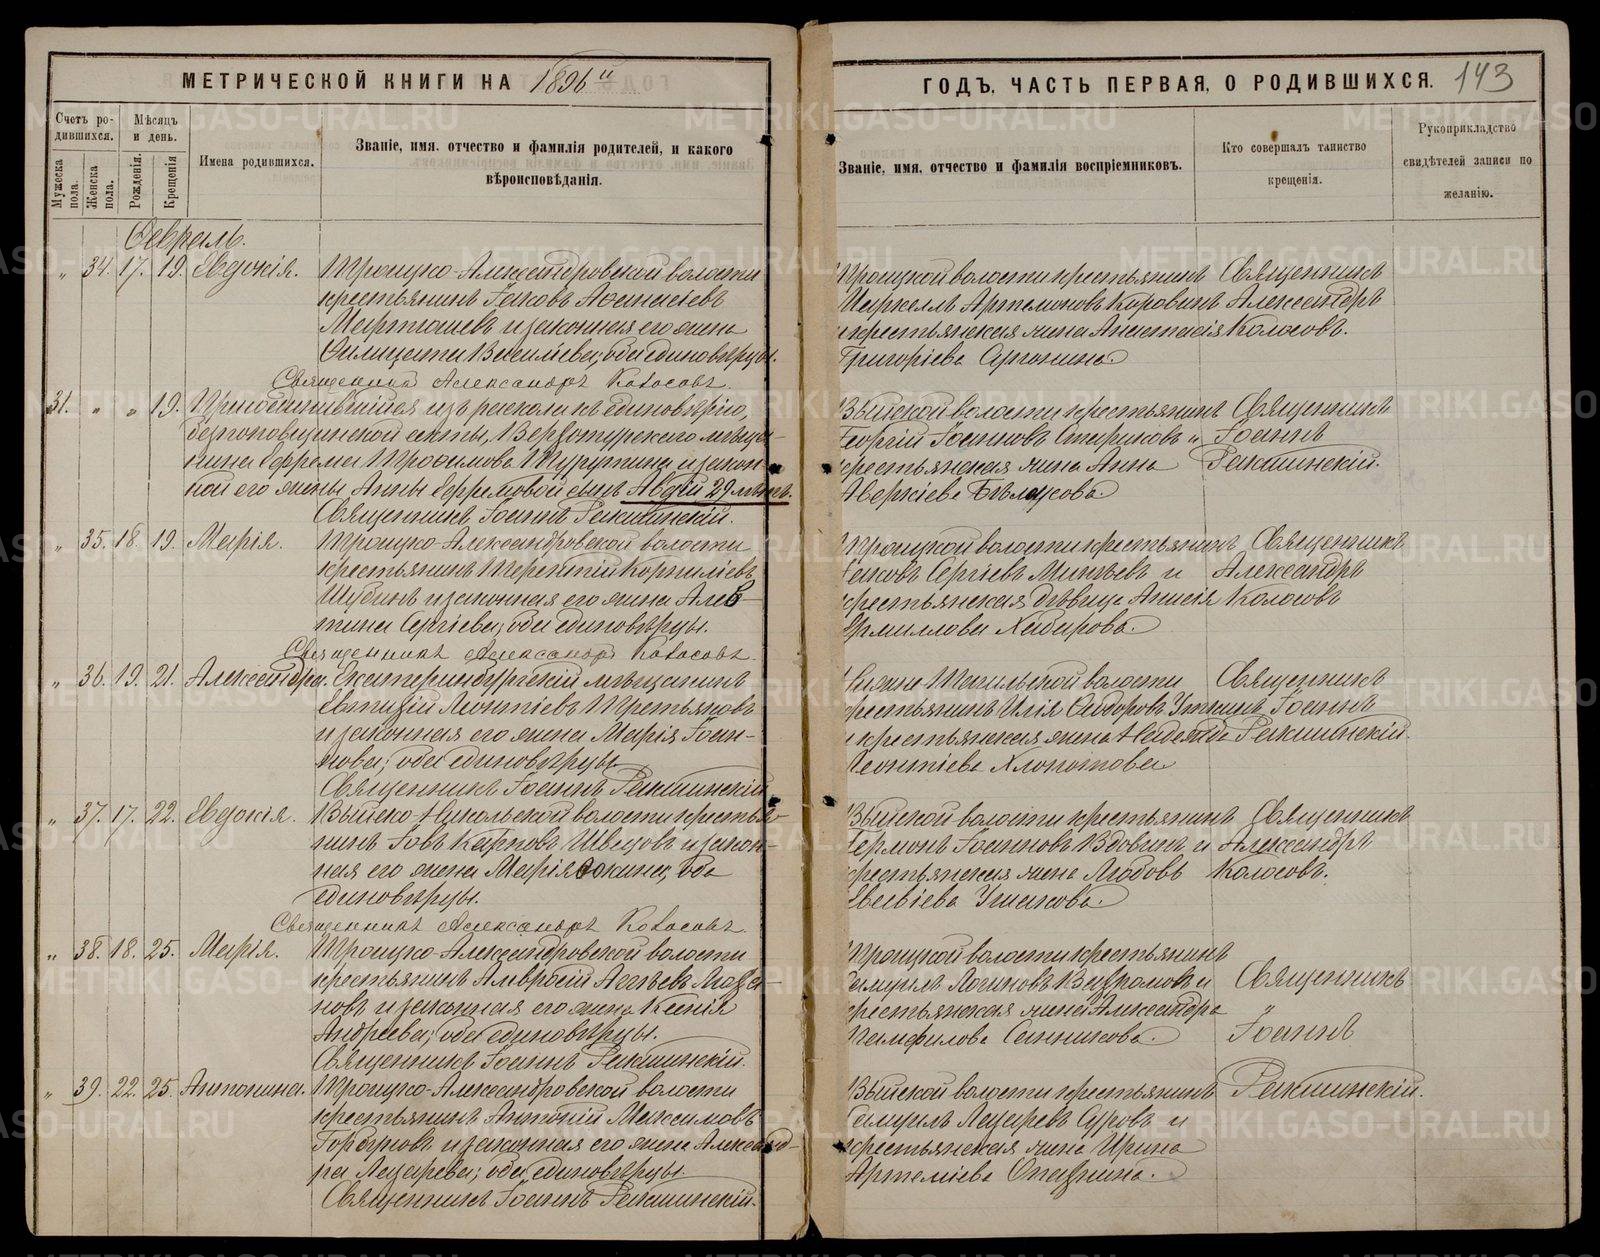 МЕТРИЧЕСКОЙ КНИГИ НА 1896й
ГОДЪ, ЧАСТЬ ПЕРВАЯ, О РОДИВШИХСЯ. 143
Счетъ ро-
дившихся.
Мужеска пола.
Женска пола.
Мѣсяцъ
и день.
Рожденія.
Крещенія
Имена родившихся.
Званіе, имя, отчество и фамилія родителей, и какого
вѣроисповѣданія.
Званіе, имя, отчество и фамилія воспріемниковъ.
Кто совершалъ таинство
крещенія.
Рукоприкладство
свидѣтелей записи по
желанію.
Февраль.
„ 34. 17. 19. Евдокія. Троицко-Александровской волости
крестьянинъ Іаковъ Аѳанасіевъ
Мартюшевъ и законная его жена
Филицата Васильева; оба единовѣрцы.
Священникъ Александръ Колосовъ.
Троицкой волости крестьянинъ
Маркеллъ Артемоновъ Коровинъ
и крестьянская жена Анастасія
Григоріева Аргонина.
Священникъ
Александръ
Колосовъ.
31. „ „ 19. Присоединившійся изъ раскола къ единовѣрію,
безпоповщинской секты, Верхотурскаго мѣща-
нина Ефрема Трофимова и закон-
ной его жены Анны Ефремовой сынъ Авдій 29 лѣтъ.
Священникъ Іоаннъ Ракшинскій.
Выйской волости крестьянинъ
Георгій Іоанновъ Стариковъ и
крестьянская жена Анна
Аверкіева Бѣлоусова.
Священникъ
Іоаннъ
Ракшинскій.
„ 35. 18. 19. Марія. Троицко-Александровской волости
крестьянинъ Терентій Корниліевъ
Шубинъ и законная его жена Алев-
тина Сергіева; оба единовѣрцы.
Священникъ Александръ Колосовъ.
Троицкой волости крестьянинъ
Іаковъ Сергіевъ Минѣевъ и
крестьянская дѣвица Анисія
Ермиллова Хабарова.
Священникъ
Александръ
Колосовъ
„ 36. 19. 21. Александра. Екатеринбургскій мѣщанинъ
Евтихій Леонтіевъ Третьяковъ
и законная его жена Марія Іоан-
нова; оба единовѣрцы
Священникъ Іоаннъ Ракшинскій
Нижне Тагильской волости
крестьянинъ Илія Сидоровъ Уткинъ
и крестьянская жена Надежда
Леонтіева Хлопотова
Священникъ
Іоаннъ
Ракшинскій.
„ 37. 17. 22. Евдокія. Выйско-Никольской волости крестья-
нинъ Іовъ Карповъ Швецовъ и закон-
ная его жена Марія Фокина; оба
единовѣрцы.
Священникъ Александръ Колосовъ.
Выйской волости крестьянинъ
Германъ Іоанновъ Вдовинъ и
крестьянская жена Любовь
Евсевіева Ушакова.
Священникъ
Александръ
Колосовъ.
„ 38. 18. 25. Марія. Троицко-Александровской волости
крестьянинъ Амвросій Агаѳьевъ Маза-
новъ и законная его жена Ксенія
Андреева; оба единовѣрцы.
Священникъ Іоаннъ Ракшинскій.
Троицкой волости крестьянинъ
Самуилъ Логиновъ и
крестьянская жена Александра
Памфилова Санникова.
Священникъ
„
Іоаннъ
„ 39. 22. 25. Антонина. Троицко-Александровской волости
крестьянинъ Антоній Максимовъ
Горбуновъ и законная его жена Александ-
ра Лазарева; оба единовѣрцы.
Священникъ Іоаннъ Ракшинскій.
Выйской волости крестьянинъ
Самуилъ Лазаревъ Суровъ и
крестьянская жена Ирина
Артеміева Опарина.
Ракшинскій.
METRIKI.GASO-URAL.RU